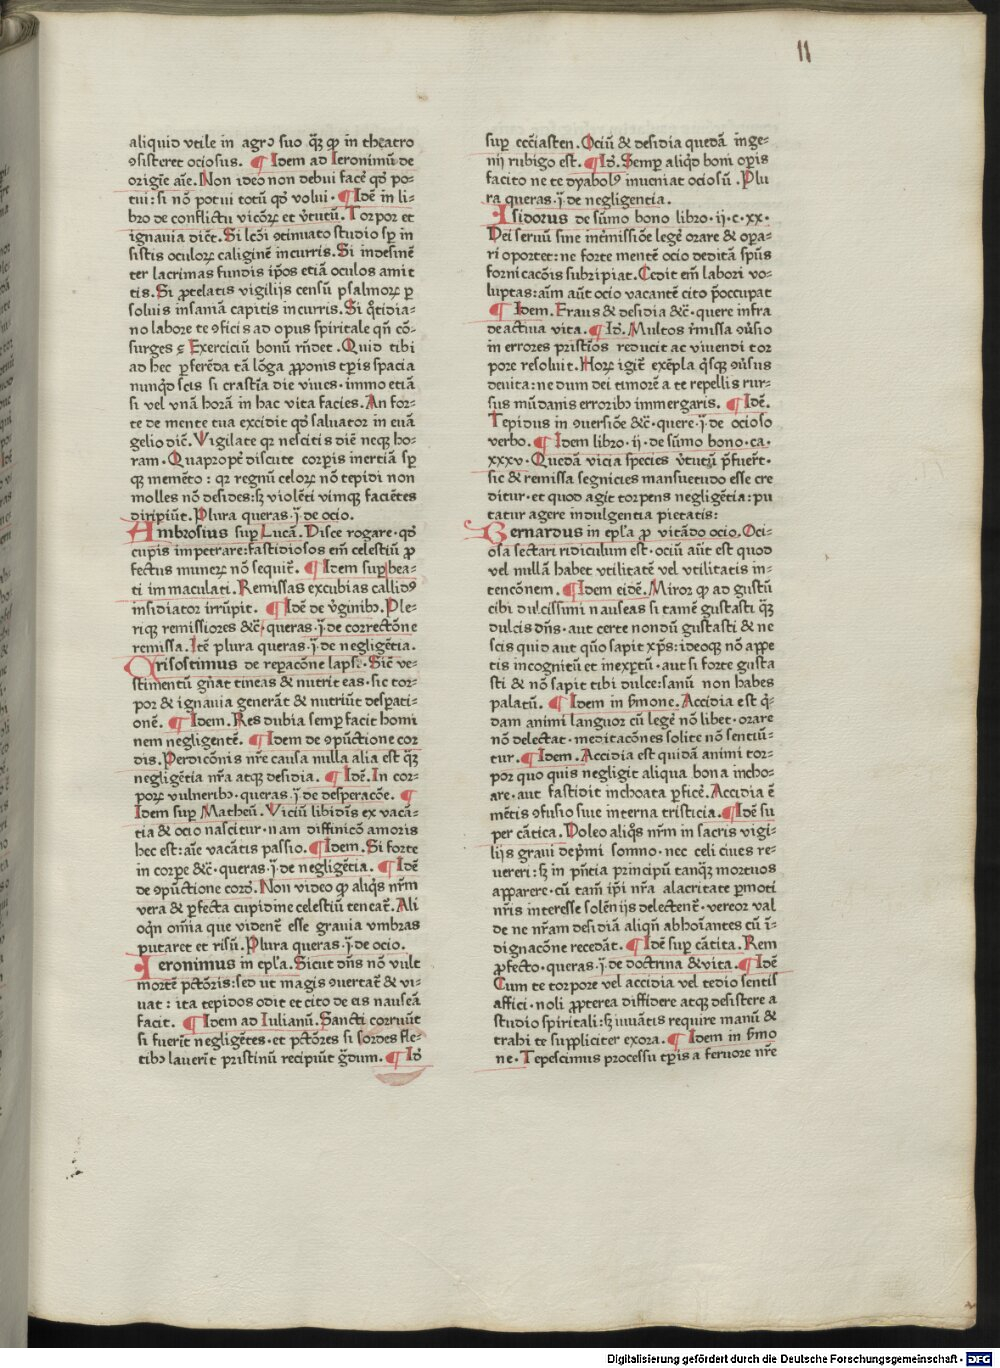 11
aliquid vtile in agro suo q̃ꝫ ꝙ in theatro
ꝯsisteret ociosus. ¶ Idem ad Ieronimũ de
origĩe aĩe. Non ideo non debui facẽ qd̕ po-
tui: si nõ potui totũ qd̕ volui · ¶ Idẽ in li-
bro de conflictu vicioꝝ et v̕tutũ. Torpor et
ignauia dic̃t. Si lc̃õi ꝯtinuato studio sp̱ in
sistis oculoꝝ caliginẽ incurris. Si indesinẽ
ter lacrimas fundis ip̃os etiã oculos amit
tis. Si ꝓtelatis vigilijs censũ psalmoꝝ ꝑ
soluis insaniã capitis incurris. Si q̃tidia-
no labore te ꝯficis ad opus spiritale qñ cõ-
surges ? Exerciciũ bonũ rñdet . Quid tibi
ad hec ꝑferẽda tã lõga ꝓponis tp̱ris spacia
nunqd̕ scis si crastĩa die viues · immo etiã
si vel vnã horã in hac vita facies. An for-
te de mente tua excidit qd̕ saluator in euã
gelio dic̃. Vigilate qr nescitis diẽ neqꝫ ho-
ram · Quaproptẽ discute corꝑis inertiã sp̱
qꝫ memẽto : qr regnũ celoꝝ nõ tepidi non
molles nõ desides: sꝫ violẽti vimqꝫ faciẽtes
diripiũt. Plura queras · j̈ · de ocio.
Ambrosius suꝑ Lucã. Disce rogare · qd̕
cupis impetrare: fastidiosos em̃ celestiũ ꝓ
fectus muneꝝ nõ sequit̃. ¶ Idem suꝑ bea-
ti immaculati. Remissas excubias callidꝰ
insidiator irrũpit. ¶ Idẽ de v̕ginibꝫ. Ple-
riqꝫ remissiores &c̃ · queras · j̈ · de correctõne
remissa. Itẽ plura queras · j̈ · de negligẽtia.
Crisostimus de reparacõne lapsi. Sic̃ ve-
stimentũ gñat tineas & nutrit eas · sic tor-
por & ignauia generãt & nutriũt desꝑati-
onẽ. ¶ Idem. Res dubia semꝑ facit homi
nem negligentẽ. ¶ Idem de ꝯpũctione cor
dis. Perdicõnis nr̃e causa nulla alia est q̃ꝫ
negligẽtia nr̃a atqꝫ desidia. ¶ Idẽ. In cor-
poꝝ vulneribꝫ · queras · j̈ · de desperacõe. ¶
Idem suꝑ Matheũ. Viciũ libidĩs ex vacã-
tia & ocio nascitur · nam diffinicõ amoris
hec est: aĩe vacãtis passio. ¶ Idem. Si forte
in corꝑe &c̃ · queras · j̈ · de negligẽtia. ¶ Idẽ
de ꝯpũctione cord̕. Non video ꝙ aliq̃s nr̃m
vera & ꝑfecta cupidine celestiũ teneat̃. Ali
oq̃n om̃ia que vident̃ esse grauia vmbras
putaret et risũ. Plura queras · j̈ · de ocio.
Ieronimus in epl̃a. Sicut dñs nõ vult
mortẽ pctõris: sed ut magis ꝯuertat̃ & vi-
uat : ita tepidos odit et cito de eis nauseã
facit. ¶ Idem ad Iulianũ. Sancti corruũt
si fuerĩt negligẽtes · et pctõres si sordes fle-
tibꝫ lauerĩt pristinũ recipiũt gradum. ¶ Id̕
suꝑ ecc̃iasten. Ociũ & desidia quedã inge-
nij rubigo est. ¶ Id̕. Semꝑ aliqd̕ boni oꝑis
facito ne te dyabolꝰ inueniat ociosũ . Plu
ra queras · j̈ · de negligencia.
Isidorus de sũmo bono libro · ij · c · xx ·
Dei seruũ sine intermissiõe legẽ orare & oꝑa-
ri oportet: ne forte mentẽ ocio deditã spũs
fornicacõis subripiat. Cedit em̃ labori vo-
luptas: aĩm aũt ocio vacantẽ cito p̃occupat
¶ Idem. Fraus & desidia &c̃ · quere infra
de actiua vita. ¶ Id̕. Multos r̃missa ꝯũsio
in errores pristĩos reducit ac viuendi tor
pore resoluit. Hoꝝ igit̃ exẽpla q̃sqꝫ ꝯũsus
deuita: ne dum dei timorẽ a te repellis rur-
sus mũdanis erroribꝫ immergaris. ¶ Idẽ.
Tepidus in ꝯuersiõe &c̃ · quere · j̈ · de ocioso
verbo. ¶ Idem libro · ij · de sũmo bono · ca ·
xxxv · Quedã vicia species v̕tutũ p̃fuert̃ ·
sic & remissa segnicies mansuetudo esse cre
ditur · et quod agit torpens negligẽtia: pu
tatur agere indulgentia pietatis:
Bernardus in epl̃a ꝓ vitãdo ocio. Oci-
osa sectari ridiculum est · ociũ aũt est quod
vel nullã habet vtilitatẽ vel vtilitatis in-
tencõnem. ¶ Idem eidẽ. Miror ꝙ ad gustũ
cibi dulcissimi nauseas si tamẽ gustasti q̃ꝫ
dulcis dñs · aut certe nondũ gustasti & ne
scis quid aut quõ sapit xp̃s: ideoqꝫ nõ appe
tis incognitũ et inexꝑtũ · aut si forte gusta
sti & nõ sapit tibi dulce: sanũ non habes
palatũ. ¶ Idem in s̃mone. Accidia est q̃-
dam animi languor cũ legẽ nõ libet · orare
nõ delectat · meditacões solite nõ sentiũ-
tur. ¶ Idem. Accidia est quidã animi tor-
por quo quis negligit aliqua bona incho-
are · aut fastidit inchoata ꝑficẽ. Accidia ẽ
mẽtis ꝯfusio siue interna tristicia. ¶ Idẽ su
per cãtica. Doleo aliq̃s nr̃m in sacris vigi-
lijs graui dep̃mi somno · nec celi ciues re-
uereri: sꝫ in pñtia principũ tanq̃ꝫ mortuos
apparere · cũ tam̃ ip̃i nr̃a alacritate ꝑmoti
nr̃is interesse solẽnijs delectent̃ · vereor val
de ne nr̃am desidiã aliqñ abhoĩantes cũ ĩ-
dignacõne recedãt. ¶ Idẽ suꝑ cãtica. Rem
ꝓfecto · queras · j̈ · de doctrina & vita. ¶ Idẽ
Cum te torpore vel accidia vel tedio sentis
affici · noli ꝓpterea diffidere atqꝫ desistere a
studio spiritali: sꝫ iuuãtis require manũ &
trahi te suppliciter exora. ¶ Idem in s̃mo
ne · Tepescimus processu tp̱ris a feruore nr̃e
Digitalisierung gefördert durch die Deutsche Forschungsgemeinschaft - DFG